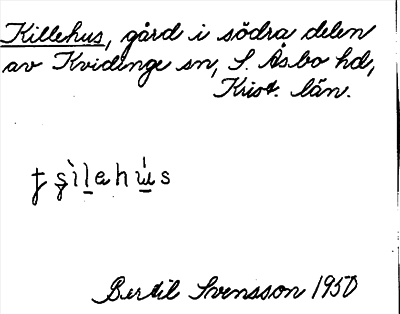 Killehus, gård i södra delen
av Kvidinge sn, S. Åsbo hd,
Krist. län.
Bertil Svensson 1950